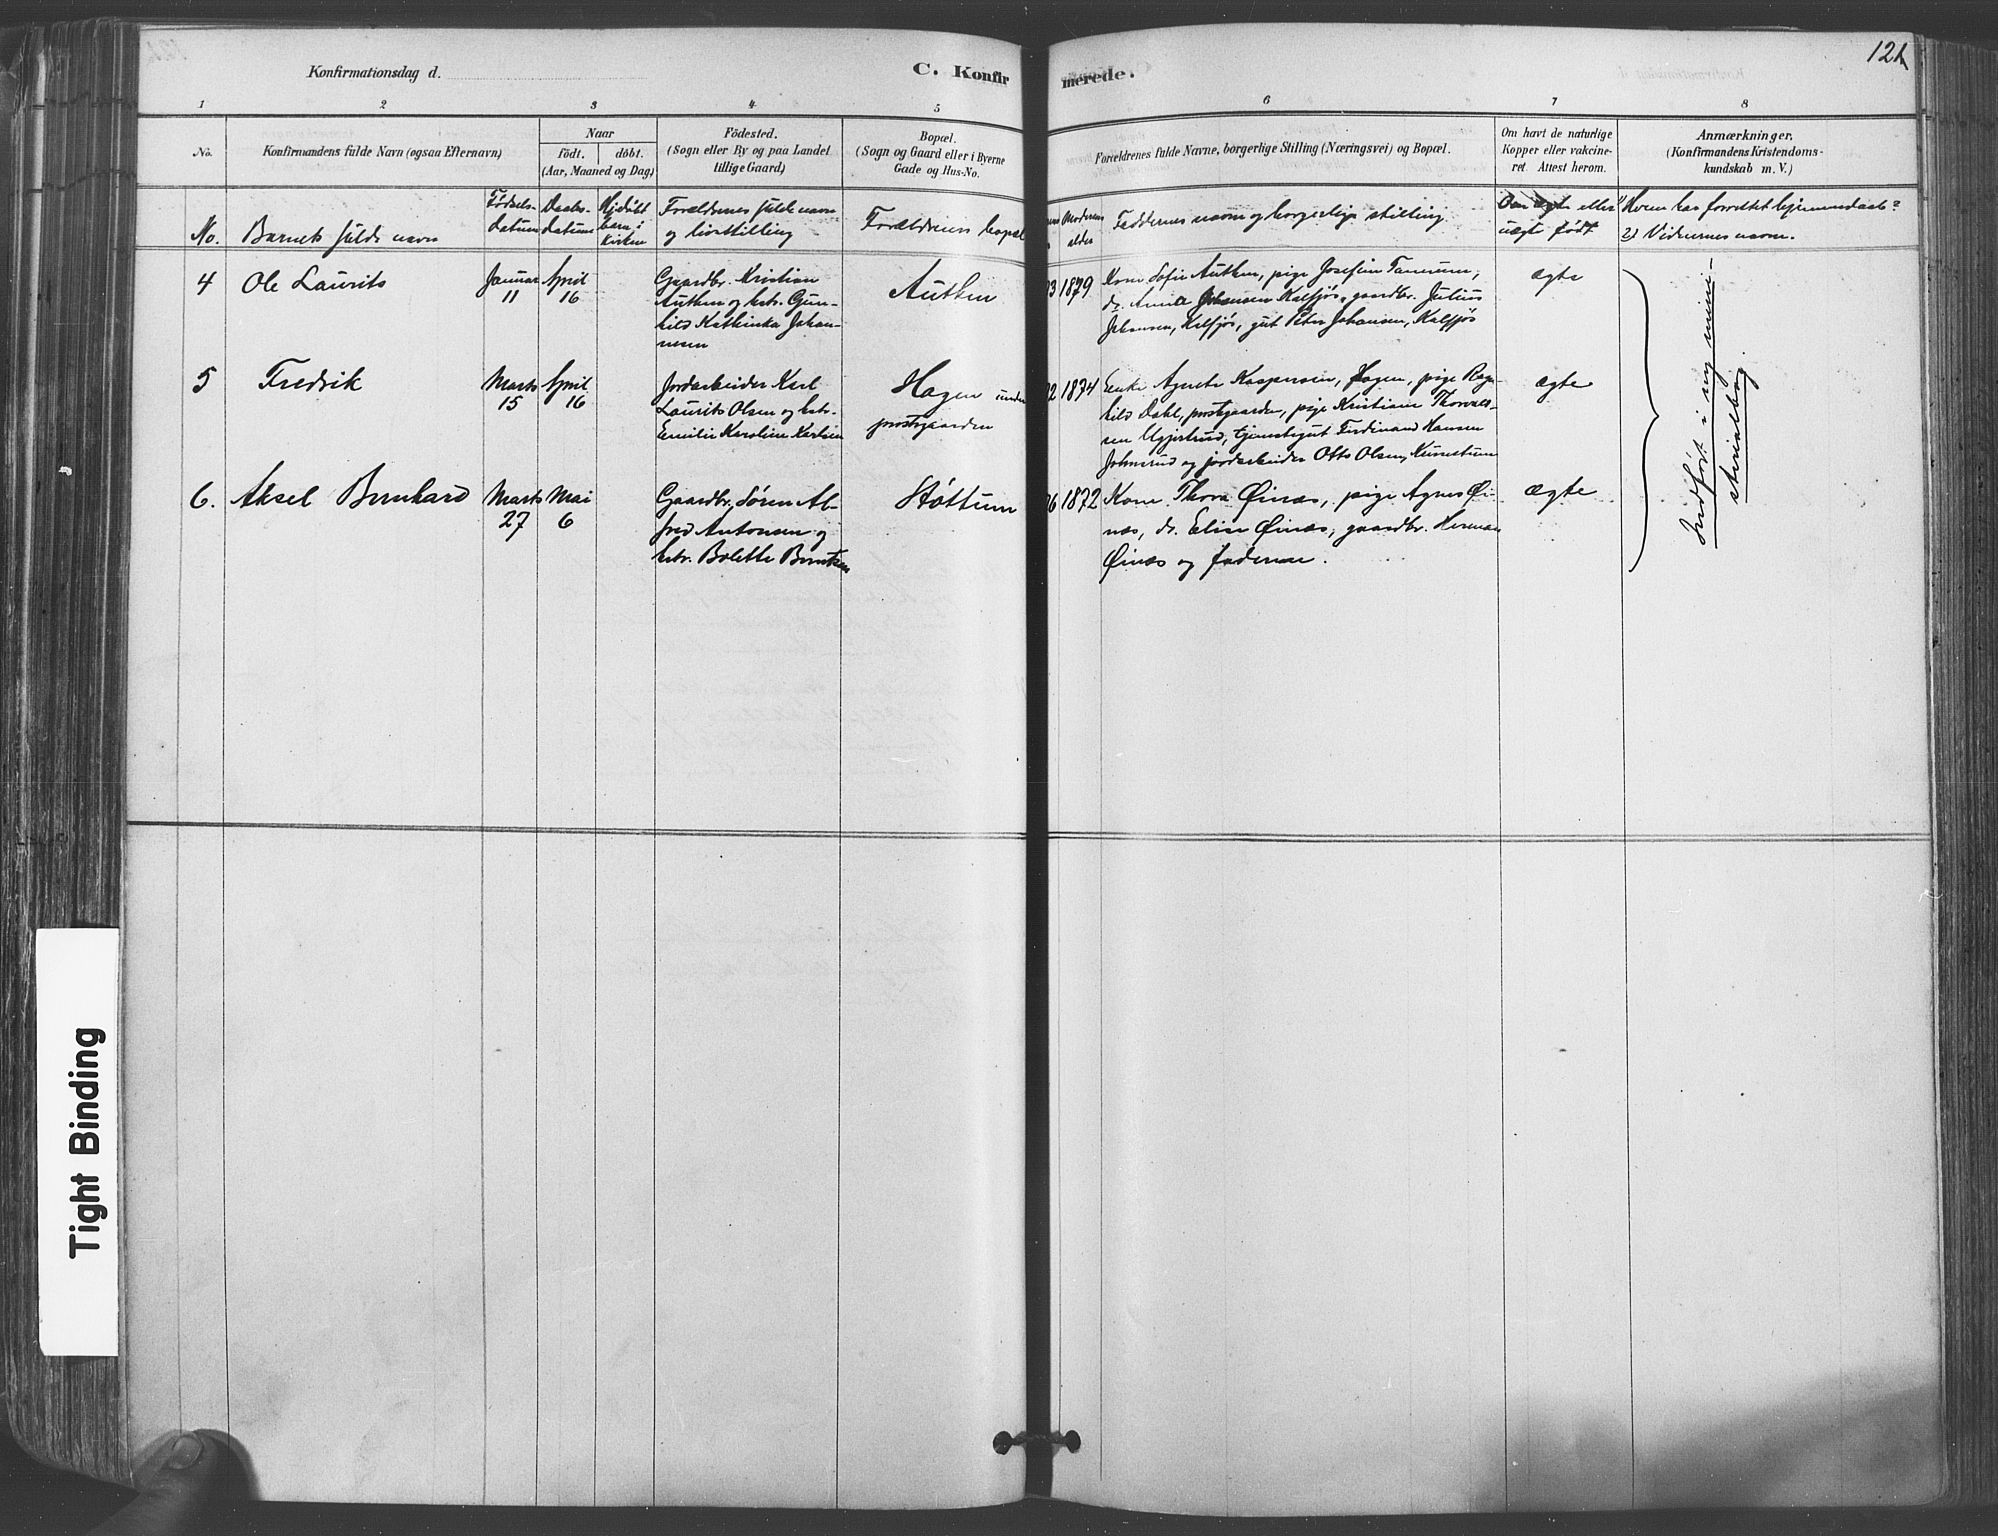 121
Konfirmationsdag d.
C. Konfir
merede.
1 2 3 4 5 6 7 8
No.
Konfirmandens fulde Navn (ogsaa Efternavn)
Naar
födt. döbt.
(Aar, Maaned og Dag)
Födested.
(Sogn eller By og paa Landet
tillige Gaard)
Bopæl.
(Sogn og Gaard eller i Byerne
Gade og Hus-No.
Forældrenes fulde Navne, borgerlige Stilling (Næringsvei) og Bopæl.
Om havt de naturlige
Kopper eller vakcine-
ret. Attest herom.
Anmærkninger.
(Konfirmandens Kristendoms-
kundskab m. V.)
No.
Barnets fulde navn
Fødsels-
datum
Daabs-
datum
Hjdöbt
barn i
kirken
Forældrenes fulde navn
og livsstilling
Forældrenes bopæl
Moderens
alder
Faddernes navn og borgerlige stilling
Om ægte eller
uægte født
1) Hvem har forrettet hjemmedaab?
2) Vidnernes navn.
4
Ole Laurits
Januar
11
April
16
Gaardbr. Kristian
Authen og hstr. Gun-
hild Kathinka Johan-
nesen
Authen
3 1879
Kone Sofie Authen, pige Josefine Tanerum,
do. Anna Johansen Kalfjøs, gaardbr. Julius
Johansen, Kalfjøs, gut Peter Johansen, Kalfjøs
ægte
5
Fredrik
Marts
15
April
16
Jordarbeider Karl
Laurits Olsen og hstr.
Emilie Karoline Karlsen
Hagen under
prestegaarden
2 1874
Enke Agnete Kaspersen, Hagen, pige Rag-
hild Dahl, prestegaarden, pige Kristiane Thorvald-
sen tjenestegut Ferdinand Hansen
Johnsrud og jordarbeider Otto Olsen,
ægte
6.
Aksel Bernhard
Marts
27
Mai
6
Gaardbr. Søren Al-
fred Antonsen og
hstr. Bolette Berntsen
Støttum
6 1872
Kone Thora Øinæs, pige Agnes Øi-
næs, do. Elise Øinæs, gaardbr. Herman
Øinæs og faderen.
ægte
Indført i ny mini-
sterialbog.
Tight Binding